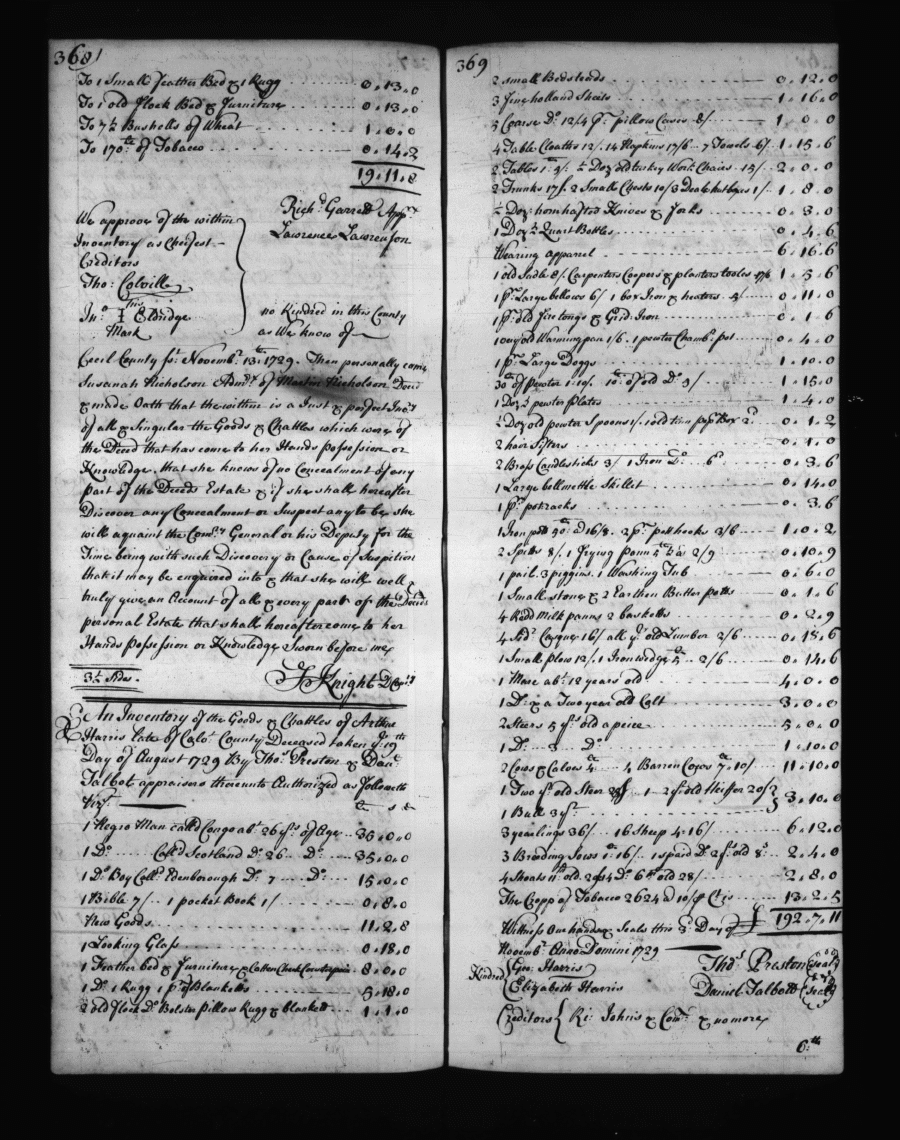 368
To 1 Small feather Bed & 1 Rugg 0.13.0
To 1 old flock Bed & furniture 0.13.0
To 7½ Bushells of Wheat 1.0.0
To 170lb of Tobacco 0.14.2
19.11.8
Richd Garrett Appr
Lawrence Lawrenson
We approve of the within
Inventory as Cheifest
Creditors
Tho: Colville
his
Jno I Eldridge
Mark
no Kindred in this County
as We know of
Cecil County sst Novembr 13th 1729. Then personally came
Susanah Nicholson Admx of Martin Nicholson Decd
& made Oath that the within is a Just & perfect Invy
of all & Singular the Goods & Chattles which were of
the Deced that has come to her Hands Possession or
Knowledge, that she knows of no Concealment of any
part of the Deceds Estate & if she shall hereafter
Discover any Concealment or Suspect any to be she
will acquaint the Comy General or his Deputy for the
Time being with such Discovery or Cause of Suspition
that it may be enquired into & that she will well &
truly give an Account of all & every part of the Deceds
personal Estate that shall hereafter come to her
Hands Possession or Knowledge Sworn before me
3½ Sides.
Knight D Comy
An Inventory of the Goods & Chattles of Arthur
Harris late of Calvt County Deceased taken ye 19th
Day of August 1729 By Thos Preston & Danl
Talbot appraisers thereunto Authorized as followeth
Vizt £ s d
1 Negro Man calld Congo abt 26 yrs of Age 35.0.0
1 Do Calld Scotland Do 26 Do 35.0.0
1 Do Boy Calld Edenborough Do 7 Do 15.0.0
1 Bible 7/ 1 pocket Book 1/ 0.8.0
New Goods 11.2.8
1 Looking Glass 0.18.0
1 Feather bed & furniture & Cotton Check Counterpain 8.0.0
1 Do 1 Rugg 1 pr of Blanketts 5.18.0
2 old flock Do Bolster Pillow Rugg & blankett 1.1.0
369
2 small Bedsteads 0.12.0
3 fine holland Sheets 1.16.0
5 Coarse Do 12/ 4 pr pillow Cases 8/ 1.0.0
4 Table Cloaths 12/. 14 Napkins 17/6 7 Towels 6/. 1.15.6
2 Tables 1: 5/. ½ Doz old turkey Workt Chairs 15/ 2.0.0
2 Trunks 17/. 2 Small Chests 10/ 3 Deale hatboxes 1/. 1.8.0
½ Doz: horn hafted Knives & forks 0.3.0
1 Doz ½ Quart Bottles 0.4.6
Wearing apparel 6.16.6
1 old Sadle 8/. Carpenters Coopers & planters tooles 17/6 1.5.6
1 pr Large bellows 6/ 1 box Iron & heaters 5/ 0.11.0
1 pr old fire tongs & Grid-Iron 0.1.6
1 very old Warming pan 1/6. 1 pewter Chambr pot 0.4.0
1 pr Large Doggs 1.10.0
30lb of Pewter 1:10/. 10lb of old Do 5/ 1.15.0
1 Doz ½ pewter plates 1.4.0
½ Doz old pewter Spoons 1/. 1 old tinn pepr Box 2d 0.1.2
2 hair Sifters 0.1.0
2 Brass Candlesticks 3/ 1 Iron Do 6d 0.3.6
1 Large bellmettle Skillet 0.14.0
1 pr potracks 0.3.6
1 Iron pott 90lb @ 16/8. 2 pr potthooks 3/6 1.0.2
2 Spitts 8/. 1 frying pann 2/9 0.10.9
1 pail. 3 piggins. 1 Washing Tub 0.6.0
1 Small stone & 2 Earthen Butter potts 0.1.6
4 Redd Milk panns 2 basketts 0.2.9
4 Casque 16/ all ye old Lumber 2/6 0.18.6
1 Small plow 12/. 1 Iron wedge 2/6 0.14.6
1 Mare abt 12 years old 4.0.0
1 Do & a Two year old Colt 3.0.0
2 Steers 5 yrs old a peice 5.0.0
1 Do 3 Do 1.10.0
2 Cows & Calves 4 4 Barren Cows 7.10/ 11.10.0
1 Two yr old Steer 1 2 yr old Heiffer 20/
1 Bull 3 yr 3.10.0
3 yearlings 36/ 16 Sheep 4:16/ 6.12.0
3 Breeding Sows 1:16/ 1 spaid Do 2 yr old 8s 2.4.0
4 Shoats 2.8.0
The Cropp of Tobacco 2624 @ 10/ 13.2.5
192.7.11
Witness Our hands & Seals this 3d Day of
Novembr Anno Domini 1729
Kindred
Geo: Harris
Elizabeth Harris
Thos Preston (seal)
Daniel Talbott (seal)
Creditors Ri: Johns & Comp & no more
6th